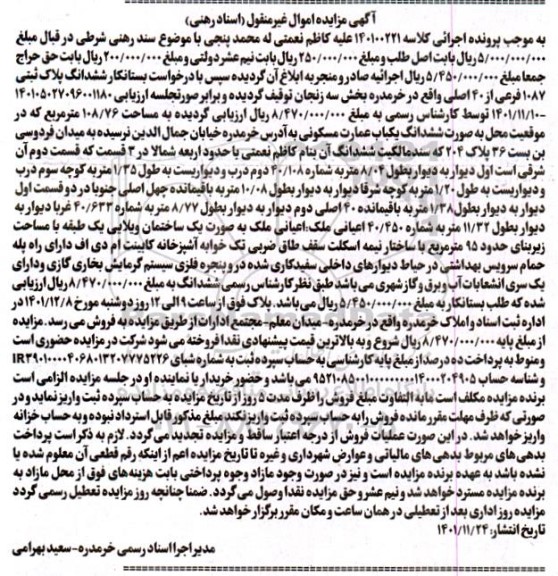 آگهی مزایده اموال غیرمنقول (اسناد رهنی)
به موجب پرونده اجرائی کلاسه ۱۴۰۱۰۰۲۲۱ علیه کاظم نعمتی له محمد پنجی با موضوع سند رهنی شرطی در قبال مبلغ
۵/۰۰۰/۰۰۰/۰۰۰ ریال بابت اصل طلب و مبلغ ۲۵۰/۰۰۰/۰۰۰ ریال بابت نیم عشر دولتی و مبلغ ۲۰۰/۰۰۰/۰۰۰ ریال بابت حق حراج
جمعا مبلغ ۵/۴۵۰/۰۰۰/۰۰۰ ریال اجرائیه صادر و منجر به ابلاغ آن گردیده سپس با درخواست بستانکار ششدانگ پلاک ثبتی
۱۰۸۷ فرعی از ۴۰ اصلی واقع در خرمدره بخش سه زنجان توقیف گردیده و برابر صورتجلسه ارزیابی ۱۴۰۱۰۵۰۲۷۰۹۶۰۰۱۱۸۰
-۱۴۰۱/۱۱/۱۰ توسط کارشناس رسمی به مبلغ ۸/۴۷۰/۰۰۰/۰۰۰ ریال ارزیابی گردیده به مساحت ۱۰۸/۷۶ مترمربع که در
موقعیت محل به صورت ششدانگ یکباب عمارت مسکونی به آدرس خرمدره خیابان جمال الدین نرسیده به میدان فردوسی
بن بست ۳۶ پلاک ۲۰۴ که سند مالکیت ششدانگ آن بنام کاظم نعمتی با حدود اربعه شمالا در ۳ قسمت که قسمت دوم آن
شرقی است اول دیوار به دیوار بطول ۸/۰۴ متر به شماره ۴۰/۱۰۸ دوم درب و دیواریست به طول ۱/۳۵ متر به کوچه سوم درب
و دیواریست به طول ۱/۲۰ متر به کوچه شرقا دیوار به دیوار بطول ۱۰/۰۸ متر به باقیمانده چهل اصلی جنوبا در دو قسمت اول
دیوار به دیوار بطول ۱/۳۸ متر به باقیمانده ۴۰ اصلی دوم دیوار به دیوار بطول ۸/۷۷ متر به شماره ۴۰/۶۳۳ غربا دیوار به
دیوار بطول ۱۱/۳۲ متر به شماره ۴۰/۴۵۰ اعیانی ملک:اعیانی ملک به صورت یک ساختمان ویلایی یک طبقه با مساحت
زیربنای حدود ۹۵ مترمربع با ساختار نیمه اسکلت سقف طاق ضربی تک خوابه آشپزخانه کابینت ام دی اف دارای راه پله
حمام سرویس بهداشتی در حیاط دیوارهای داخلی سفیدکاری شده در و پنجره فلزی سیستم گرمایش بخاری گازی و دارای
یک سری انشعابات آب و برق و گاز شهری می باشد طبق نظر کارشناس رسمی ششدانگ به مبلغ ۸/۴۷۰/۰۰۰/۰۰۰ ریال ارزیابی
شده که طلب بستانکار به مبلغ ۵/۴۵۰/۰۰۰/۰۰۰ ریال می باشد. پلاک فوق از ساعت ۹ الی ۱۲ روز دوشنبه مورخ ۱۴۰۱/۱۲/۸ در
اداره ثبت اسناد و املاک خرمدره واقع در خرمدره- میدان معلم- مجتمع ادارات از طریق مزایده به فروش می رسد. مزایده
از مبلغ پایه ۸/۴۷۰/۰۰۰/۰۰۰ ریال شروع و به بالاترین قیمت پیشنهادی نقدا فروخته می شود شرکت در مزایده حضوری است
و منوط به پرداخت ده درصد از مبلغ پایه کارشناسی به حساب سپرده ثبت به شماره شبای IR۳۹۰۱۰۰۰۰۴۰۶۸۰۱۳۲۰۷۷۷۵۲۲۶
و شناسه حساب می باشد و حضور خریدار یا نماینده او در جلسه مزایده الزامی است
برنده مزایده مکلف است مابه التفاوت مبلغ فروش را ظرف مدت ۵ روز از تاریخ مزایده به حساب سپرده ثبت واریز نماید و در
صورتی که ظرف مهلت مقرر مانده فروش را به حساب سپرده ثبت واریز نکند مبلغ مذکور قابل استرداد نبوده و به حساب خزانه
واریز خواهد شد. در این صورت عملیات فروش از درجه اعتبار ساقط و مزایده تجدید می گردد. لازم به ذکر است پرداخت
بدهی های مربوط بدهی های مالیاتی و عوارض شهرداری و غیره تا تاریخ مزایده اعم از اینکه رقم قطعی آن معلوم شده یا
نشده باشد به عهده برنده مزایده است و نیز در صورت وجود مازاد وجوه پرداختی بابت هزینه های فوق از محل مازاد به
برنده مزایده مسترد خواهد شد و نیم عشر و حق مزایده نقدا وصول می گردد. ضمنا چنانچه روز مزایده تعطیل رسمی گردد
مزایده روز اداری بعد از تعطیلی در همان ساعت و مکان مقرر برگزار خواهد شد.
تاریخ انتشار: ۱۴۰۱/۱۱/۲۴
مدیر اجرا اسناد رسمی خرمدره-سعید بهرامی